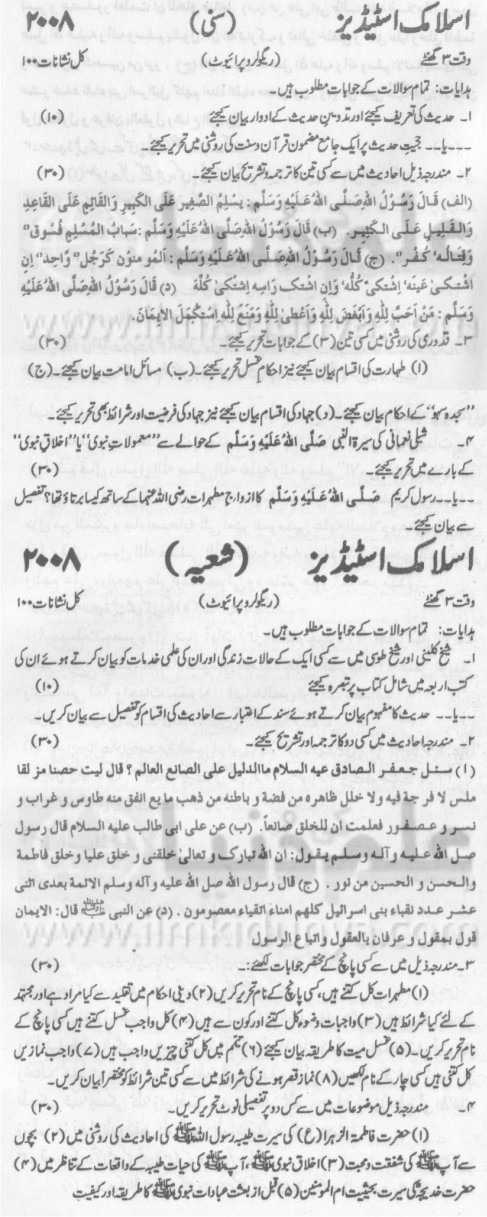 اسلامک اسٹیڈیز (سنی) ۲۰۰۸
وقت ۳ گھنٹے (ریگولر و پرائیوٹ) کل نشانات ۱۰۰
ہدایات: تمام سوالات کے جوابات مطلوب ہیں۔
۱۔ حدیث کی تعریف کیجئے اور تدوین حدیث کے ادوار بیان کیجئے (۱۰)
۔۔۔یا۔۔ حجیت حدیث پر ایک جامع مضمون قرآن و سنت کی روشنی میں تحریر کیجئے۔
۲۔ مندرجہ ذیل احادیث میں سے کسی تین کا ترجمہ و تشریح بیان کیجئے۔ (۳۰)
(الف) قَالَ رَسُوْلُ اللهِ صَلَّى اللهُ عَلَيْهِ وَسَلَّمَ: يسلم الصَّغِيرُ عَلَى الْكَبِيرِ وَالْقَائِمُ عَلَى الْقَاعِدِ
وَالْقَلِيلُ عَلَى الْكَثِيرِ. (ب) قَالَ رَسُوْلُ اللهِ صَلَّى اللهُ عَلَيْهِ وَسَلَّمَ: سَبَابُ الْمُسْلِمِ فُسُوْق"
وَقِتَالُه' كُفْر". (ج) قَالَ رَسُوْلُ اللهِ صَلَّى اللهُ عَلَيْهِ وَسَلَّمَ: اَلْمُو مِنُوْنَ كَرَجُلٍ" وَّاحِدٍ" اِنِ
اشْتَكىٰ عَيْنَه' اِشْتَكىٰ كُلُّه' وَاِنِ اشْتَكَ رَاسِه اِشْتَكىٰ كُلُّهُ (د) قَالَ رَسُوْلُ اللهِ صَلَّى اللهُ عَلَيْهِ
وَسَلَّمَ: مَنْ اَحَبَّ لِلّٰهِ وَاَبْغَضَ لِلّٰهِ وَاَعْطىٰ لِلّٰهِ وَمَنَعَ لِلّٰهِ اِسْتَكْمَلَ الْاِيْمَانَ.
۳۔ قدوری کی روشنی میں سے کسی تین (۳) کے جوابات تحریر کیجئے۔ (۳۰)
(ا) طہارت کی اقسام بیان کیجئے نیز احکام غسل تحریر کیجئے۔ (ب) مسائل امامت بیان کیجئے۔ (ج)
"سجدہ سہو" کے احکام بیان کیجئے۔ (د) جہاد کی اقسام بیان کیجئے نیز جہاد کی فرضیت اور شرائط بھی تحریر کیجئے۔
۴۔ شبلی نعمانی کی سیرۃ النبی صَلَّى اللهُ عَلَيْهِ وَسَلَّمَ کے حوالے سے "معمولات نبوی" یا "اخلاق نبوی"
کے بارے میں تحریر کیجئے۔ (۳۰)
۔۔۔یا۔۔ رسول کریم صَلَّى اللهُ عَلَيْهِ وَسَلَّمَ کا ازواج مطہرات رضی اللہ عنہما کے ساتھ کیسا برتاؤ تھا؟ تفصیل
سے بیان کیجئے۔
اسلامک اسٹیڈیز (شعیہ) ۲۰۰۸
وقت ۳ گھنٹے (ریگولر و پرائیوٹ) کل نشانات ۱۰۰
ہدایات: تمام سوالات کے جوابات مطلوب ہیں۔
۱۔ شیخ کلینی اور شیخ طوسی میں سے کسی ایک کے حالات زندگی اور ان کی علمی خدمات کو بیان کرتے ہوئے ان کی
کتب اربعہ میں شامل کتاب پر تبصرہ کیجئے (۱۰)
۔۔۔یا۔۔ حدیث کا مفہوم بیان کرتے ہوئے سند کے اعتبار سے احادیث کی اقسام کو تفصیل سے بیان کریں۔
۲۔ مندرجہ احادیث میں سے کسی دو کا ترجمہ اور تشریح کیجئے (۳۰)
(ا) سئل جعفر الصادق عیه السلام ماالدلیل علی الصانع العالم؟ قال لیت حصنا مز لقا
ملس لا فرجة فیه ولا خلل ظاهره من فضة و باطنه من ذهب ما یع انفق منه طاوس و غراب و
نسر و عصفور فعلمت ان للخلق صانعاً. (ب) عن علی ابی طالب علیه السلام قال رسول
صل الله علیه و آله وسلم یقول: ان الله تبارک و تعالیٰ خلقنی و خلق علیا وخلق فاطمة
والحسن و الحسین من نور. (ج) قال رسول الله صل الله علیه و آله وسلم الائمة بعدی اثنی
عشر عدد نقباء بنی اسرائیل کلهم امناء اتقیاء معصومون. (د) عن النبی ﷺ قال: الایمان
قول بمقول و عرفان بالعقول و اتباع الرسول
۳۔ مندرجہ ذیل میں سے کسی پانچ کے مختصر جوابات لکھئے:۔ (۳۰)
(۱) مطہرات کل کتنے ہیں، کسی پانچ کے نام تحریر کریں (۲) دینی احکام میں تقلید سے کیا مراد ہے اور مجتہد
کے لئے کیا شرائط ہیں (۳) واجبات وضو کل کتنے اور کون سے ہیں (۴) کل واجب غسل کتنے ہیں کسی پانچ کے
نام تحریر کریں۔ (۵) غسل میت کا طریقہ بیان کیجئے (۶) تیمم میں کل کتنی چیزیں واجب ہیں (۷) واجب نمازیں
کل کتنی ہیں کسی چار کے نام لکھیں (۸) نماز قصر ہونے کی شرائط میں سے کسی تین شرائط کو مختصراً بیان کریں۔
۴۔ مندرجہ ذیل موضوعات میں سے کس دو پر تفصیلی نوٹ تحریر کریں۔ (۳۰)
(۱) حضرت فاطمۃ الزہرا (ع) کی سیرت طیبہ رسول اللہ ﷺ کی احادیث کی روشنی میں (۲) بچوں
سے آپ ﷺ کی شفقت و محبت (۳) اخلاق نبوی ﷺ، آپ ﷺ کی حیات طیبہ کے واقعات کے تناظر میں (۴)
حضرت خدیجہؓ کی سیرت بحیثیت ام المومنین (۵) قبل از بعثت عبادات نبوی ﷺ کا طریقہ اور کیفیت